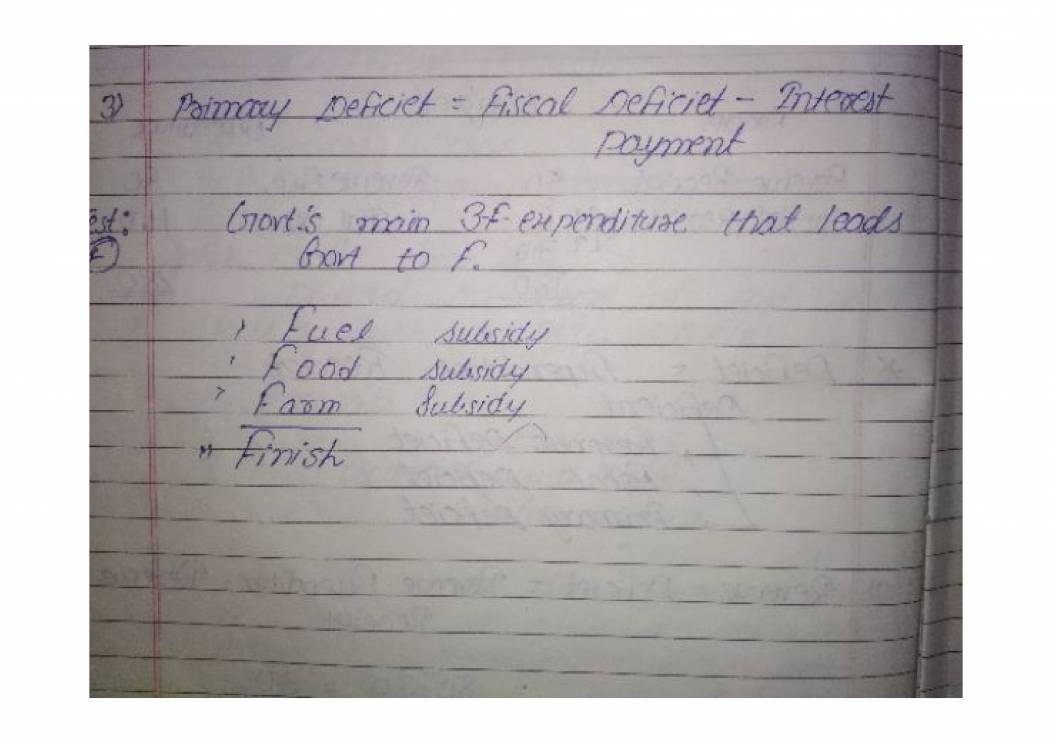 3) Primary Deficiet = Fiscal Deficiet - Interest
Payment
est: Govt.'s main 3-F- expenditure that leads
F Govt to F.
Fuel subsidy
Food subsidy
Farm Subsidy
" Finish